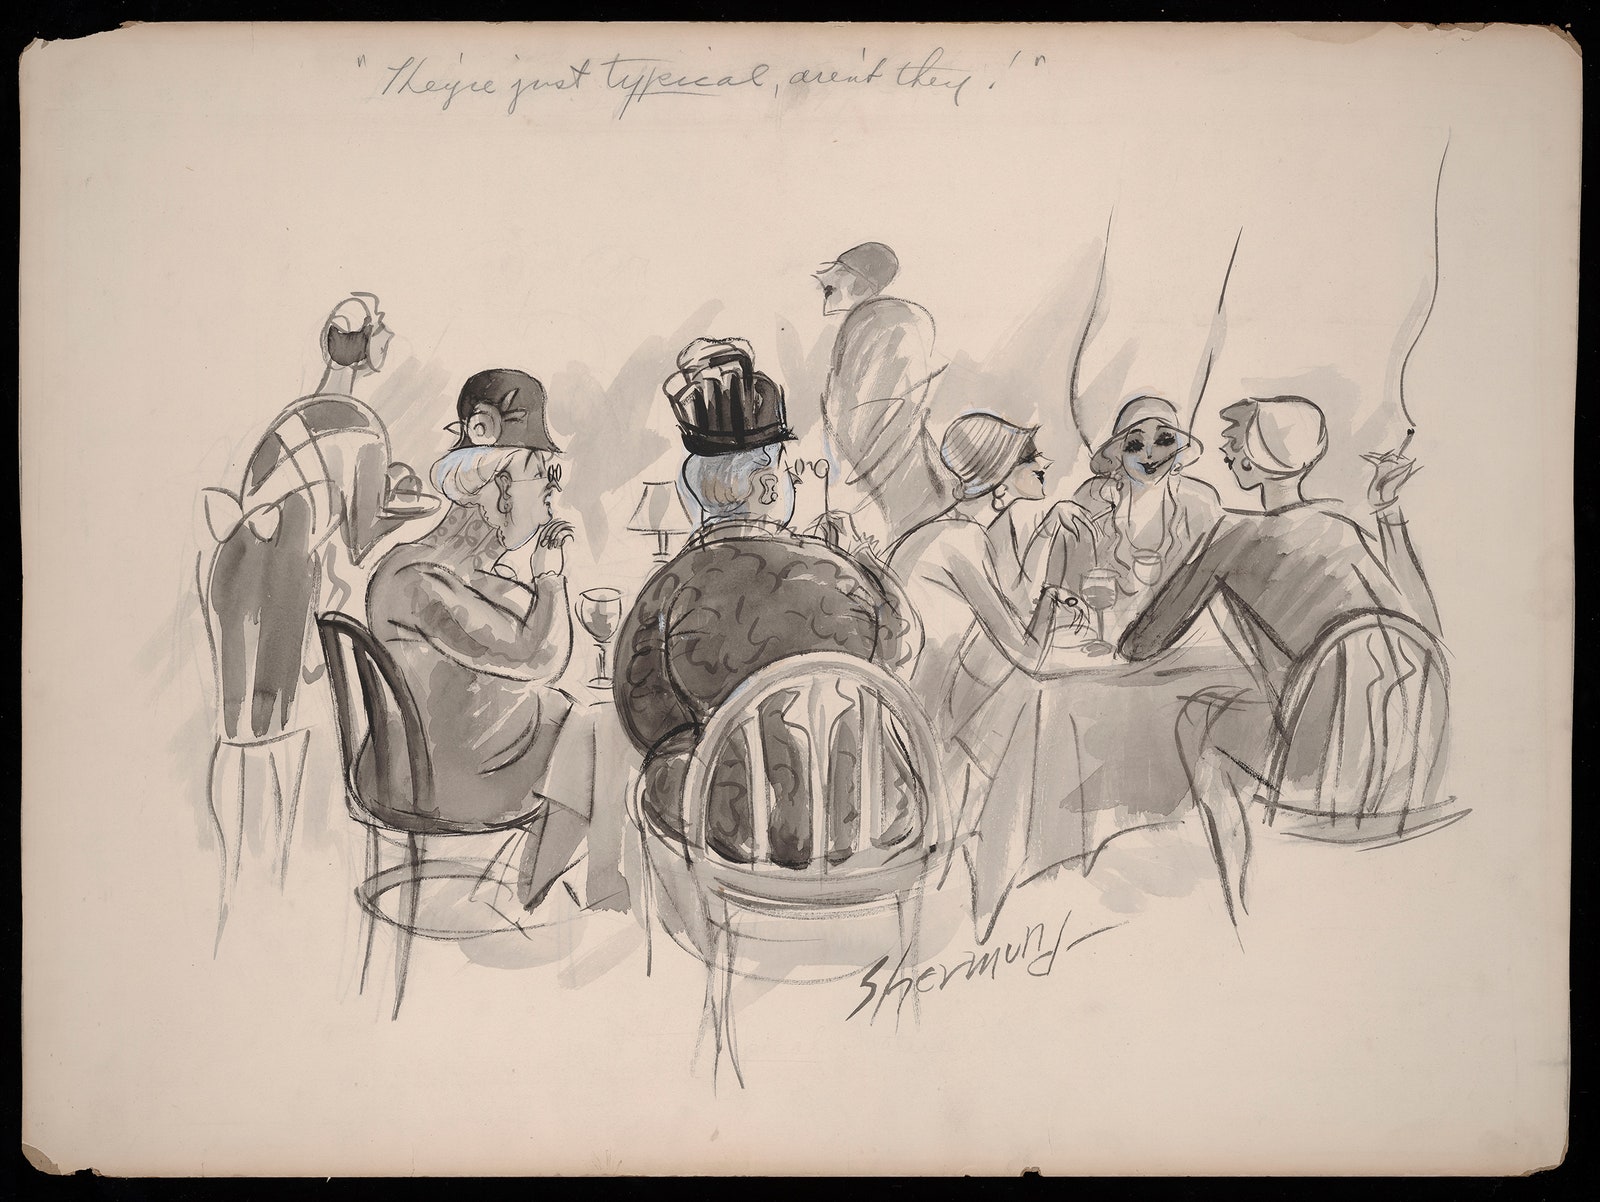 "They're just typical, aren't they!"
Shermund